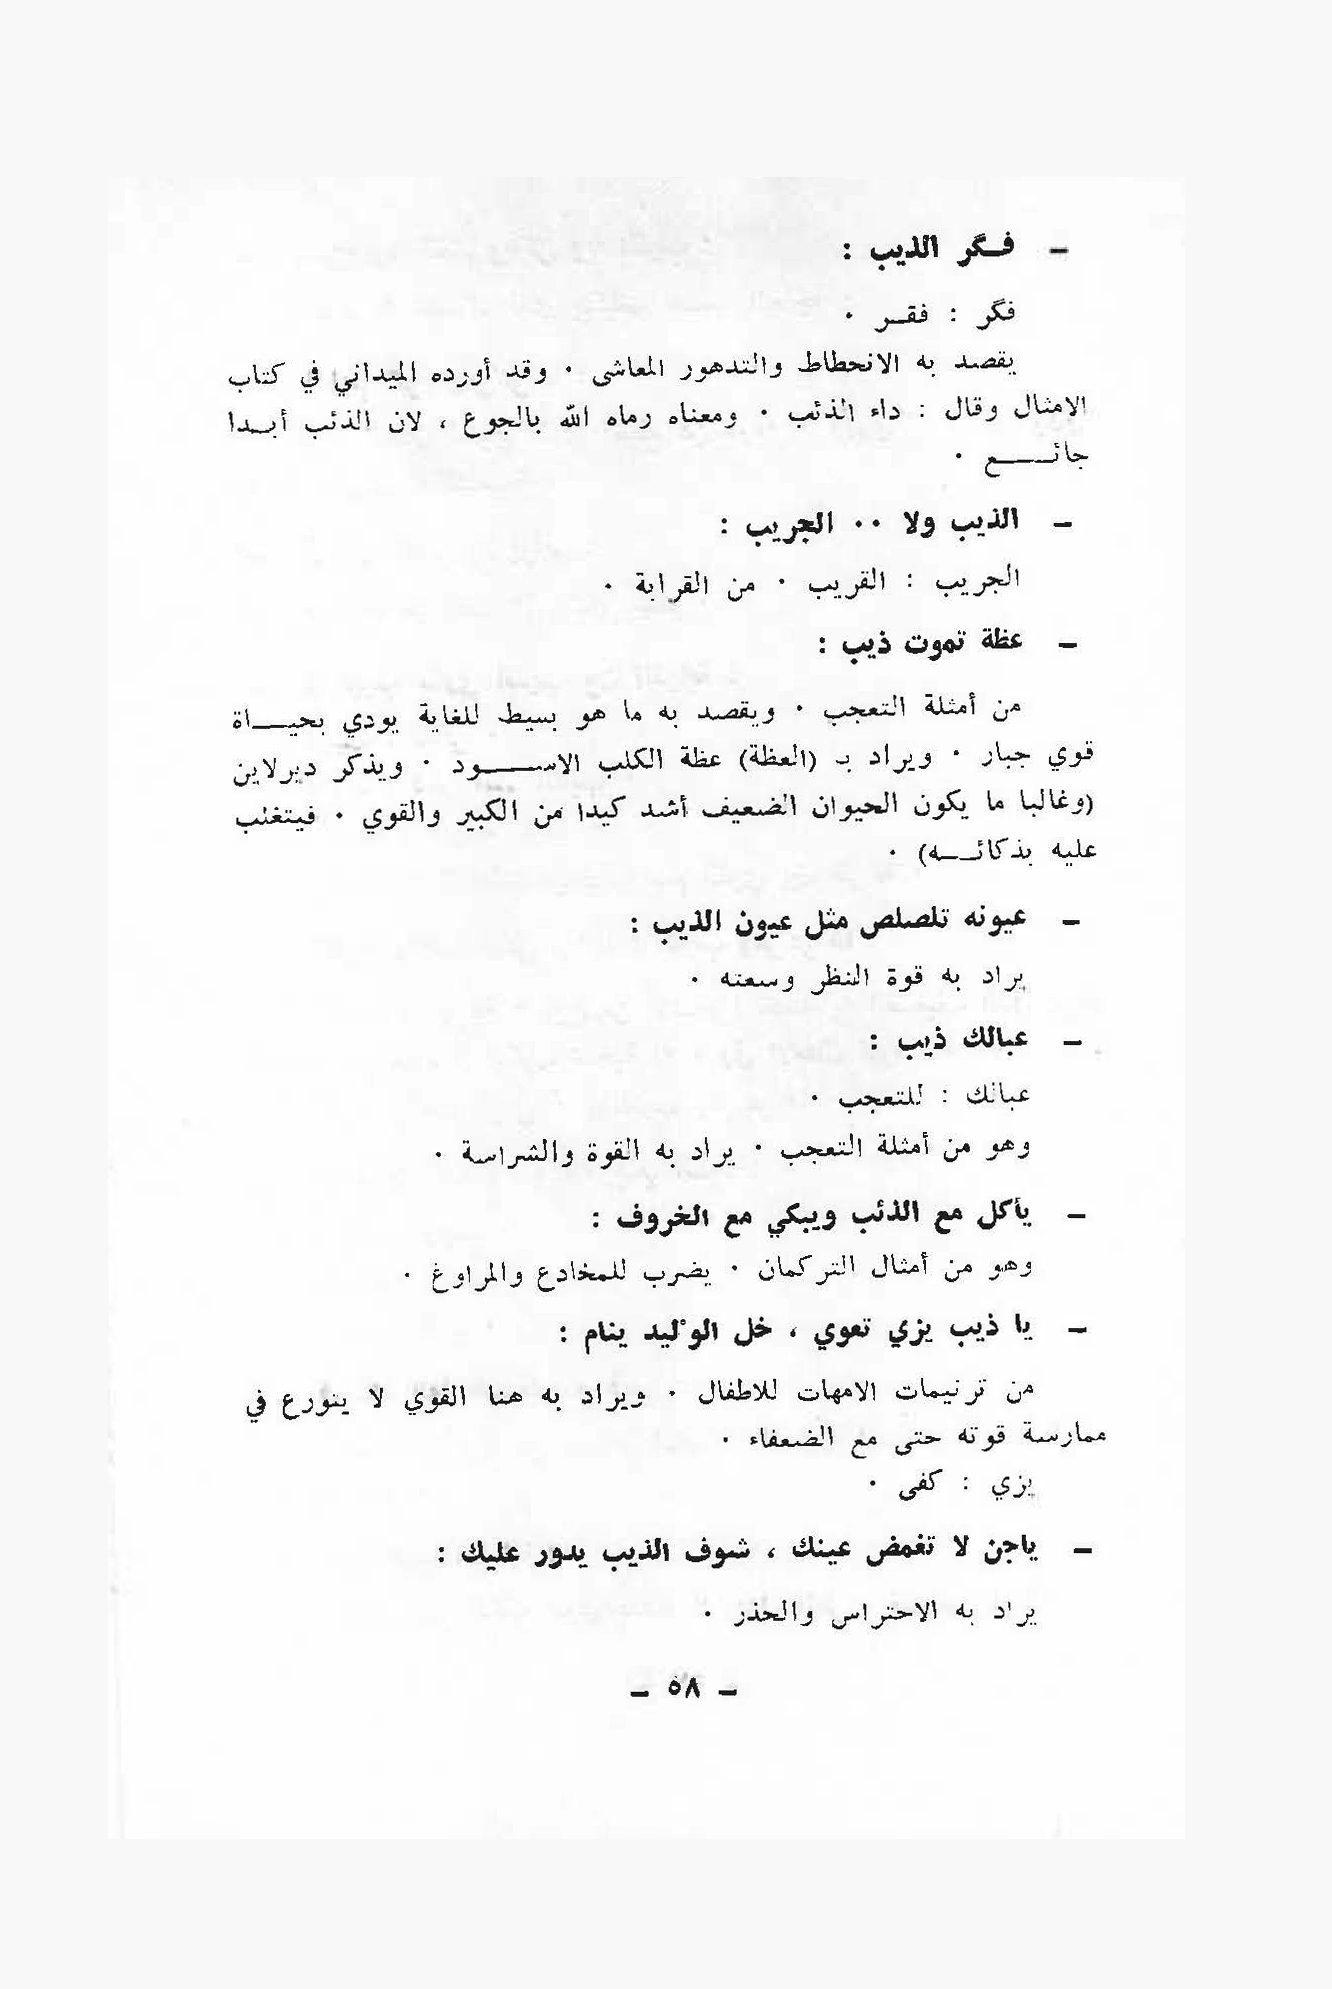 – فـگر الذيب :
فگر : فقـر ٠
يقصد به الانحطاط والتدهور المعاشى ٠ وقد أورده الميداني في كتاب
الامثال وقال : داء الذئب ٠ ومعناه رماه الله بالجوع ، لان الذئب أبـدا
جائـــع ٠
– الذيب ولا ٠٠ الجريب :
الجريب : القريب ٠ من القرابة ٠
– عظة تموت ذيب :
من أمثلة التعجب ٠ ويقصد به ما هو بسيط للغاية يودي بحيــاة
قوي جبار ٠ ويراد بـ (العظة) عظة الكلب الاســود ٠ ويذكر ديرلاين
(وغالبا ما يكون الحيوان الضعيف أشد كيدا من الكبير والقوي ٠ فيتغلب
عليه بذكائــه) ٠
– عيونه تلصلص مثل عيون الذيب :
يراد به قوة النظر وسعته ٠
– عبالك ذيب :
عبالك : للتعجب ٠
وهو من أمثلة التعجب ٠ يراد به القوة والشراسة ٠
– يأكل مع الذئب ويبكي مع الخروف :
وهو من أمثال التركمان ٠ يضرب للمخادع والمراوغ ٠
– يا ذيب يزي تعوي ، خل الوْليد ينام :
من ترنيمات الامهات للاطفال ٠ ويراد به هنا القوي لا يتورع في
ممارسة قوته حتى مع الضعفاء ٠
يزي : كفى ٠
– ياجن لا تغمض عينك ، شوف الذيب يدور عليك :
يراد به الاحتراس والحذر ٠
– ٥٨ –